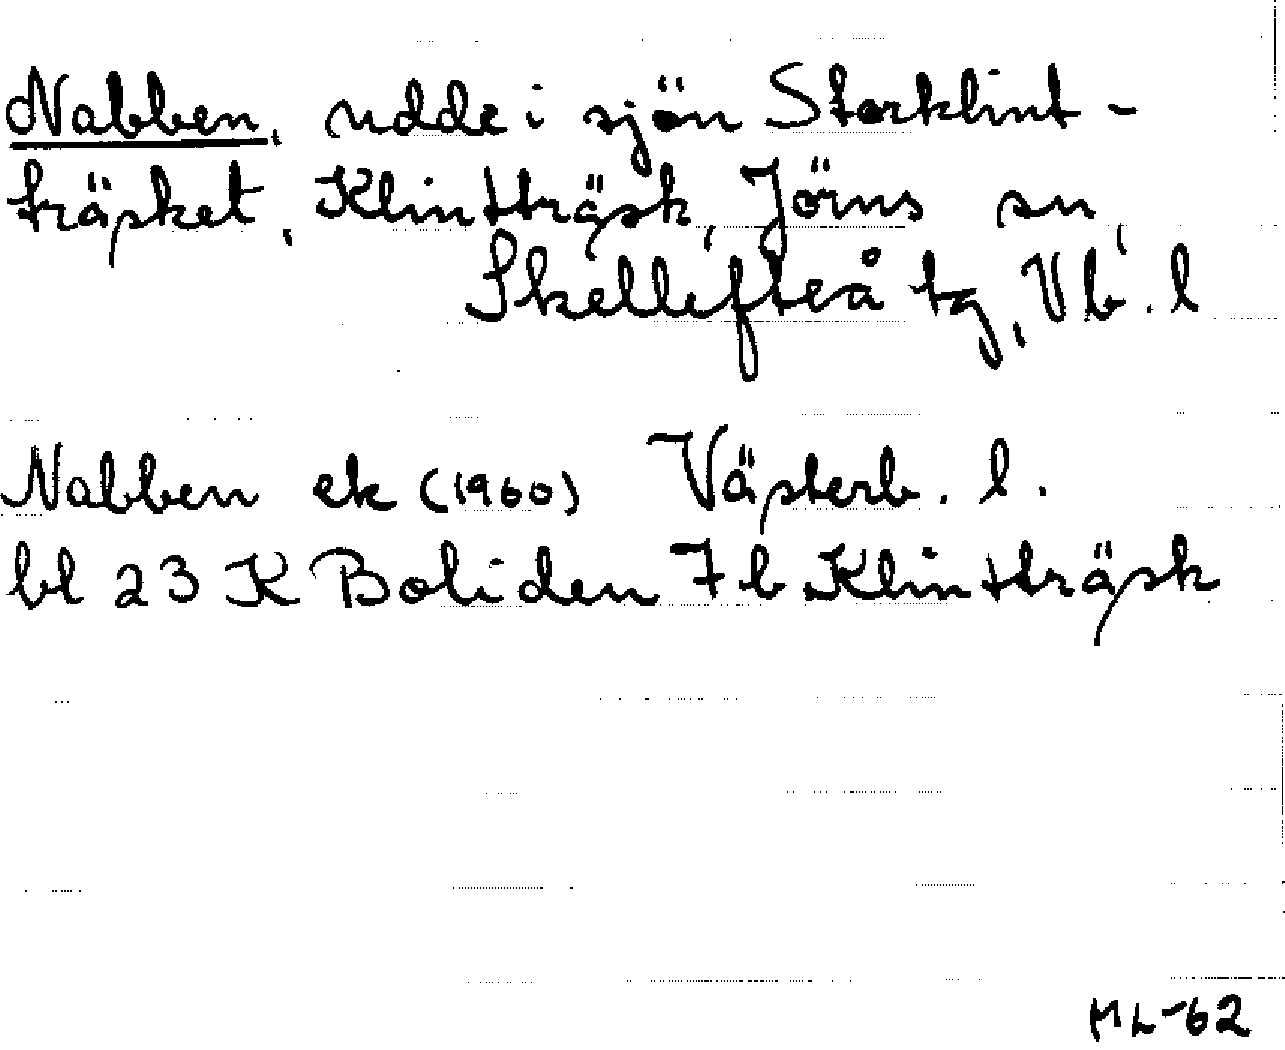 Nabben, udde i sjön Storklint-
träsket, Klintträsk, Jörns sn,
Skellefteå tg, Vb. l
Nabben ek (1960) Västerb. l.
bl 23 K Boliden 7 b Klintträsk
ML-62